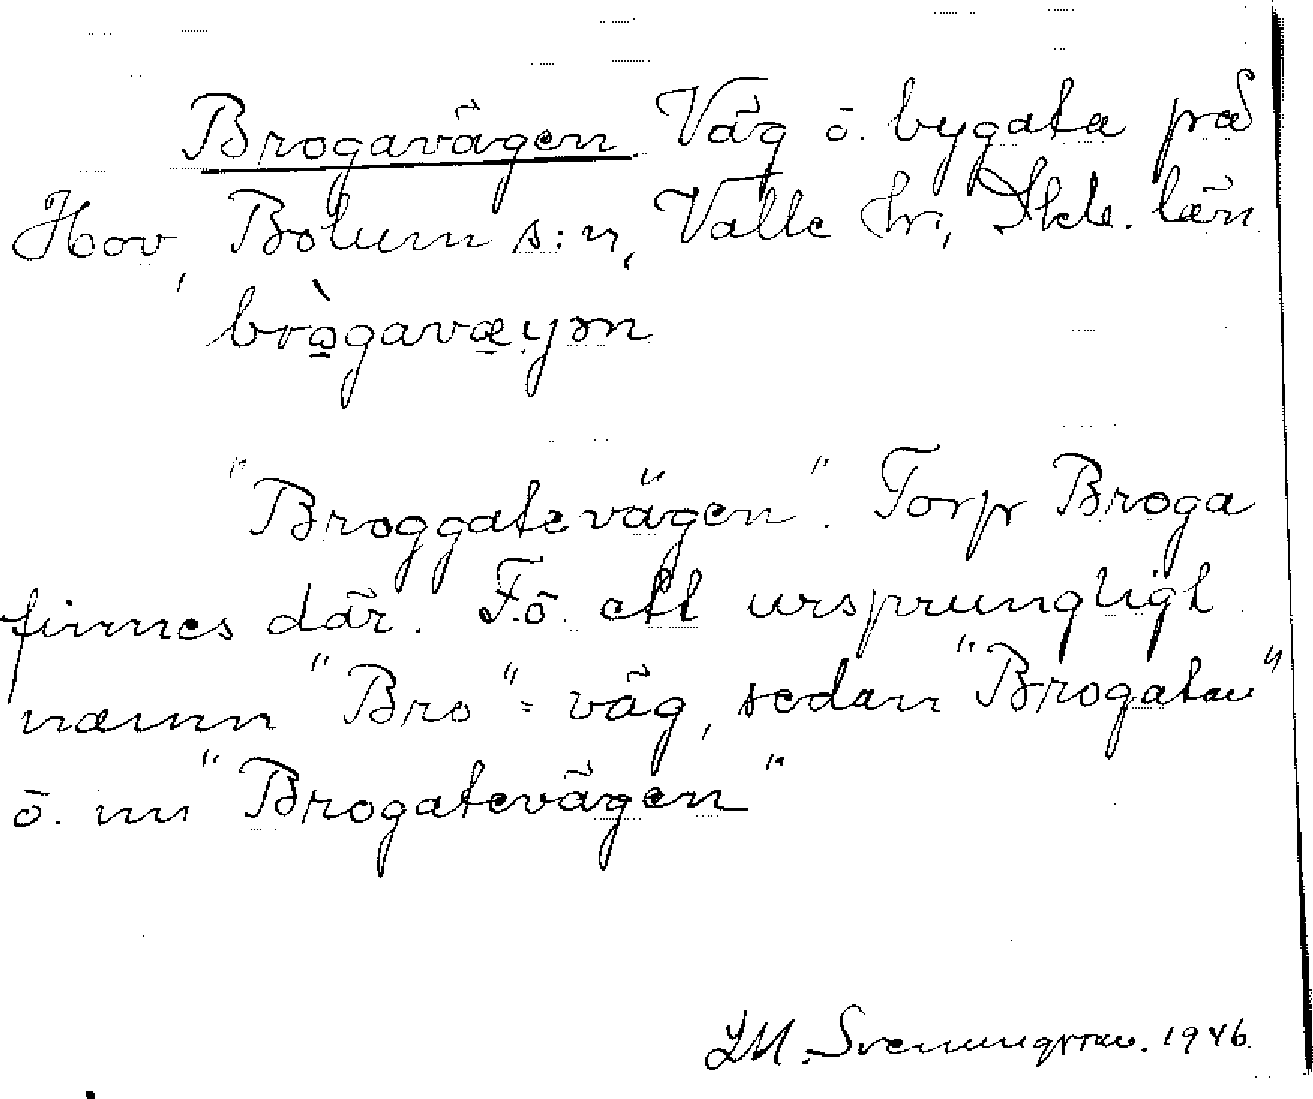 Brogavägen. Väg o. bygata på
Hov, Bolum s:n, Valle hd, Skb. län
brògavæyən
"Broggatevägen". Torp Broga
finnes där. F.ö. ett ursprungligt
namn "Bro"-väg, sedan "Brogatan"
o. nu "Brogatevägen"
J M. Svenungsson. 1946.